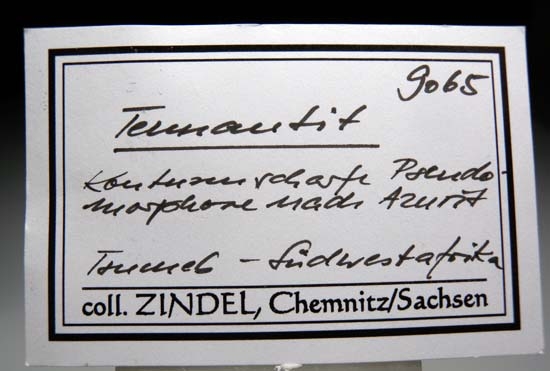 9065
Tennantit
Konturenscharfe Pseudo-
morphose nach Azurit
Tsumeb - Südwestafrika
coll. ZINDEL, Chemnitz/Sachsen